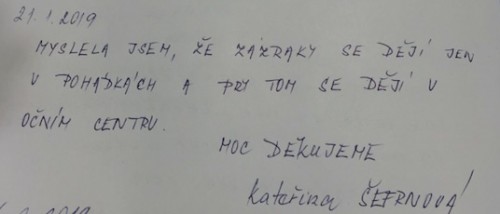 21.1.2019
MYSLELA JSEM, ŽE ZÁZRAKY SE DĚJÍ JEN
V POHÁDKÁCH A PŘY TOM SE DĚJÍ V
OČNÍM CENTRU.
MOC DĚKUJEME
Kateřina ŠEFRNOVÁ
2019